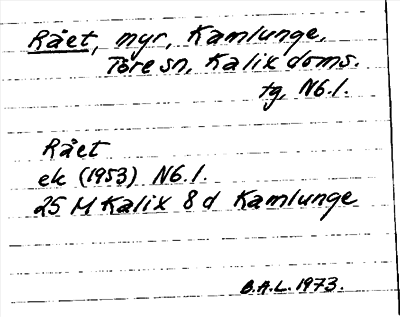 Rået, myr, Kamlunge,
Töre sn, Kalix doms.
tg, Nb.l.
Rået
ek (1953) Nb.l.
25 M Kalix 8d Kamlunge
B.A.L. 1973.